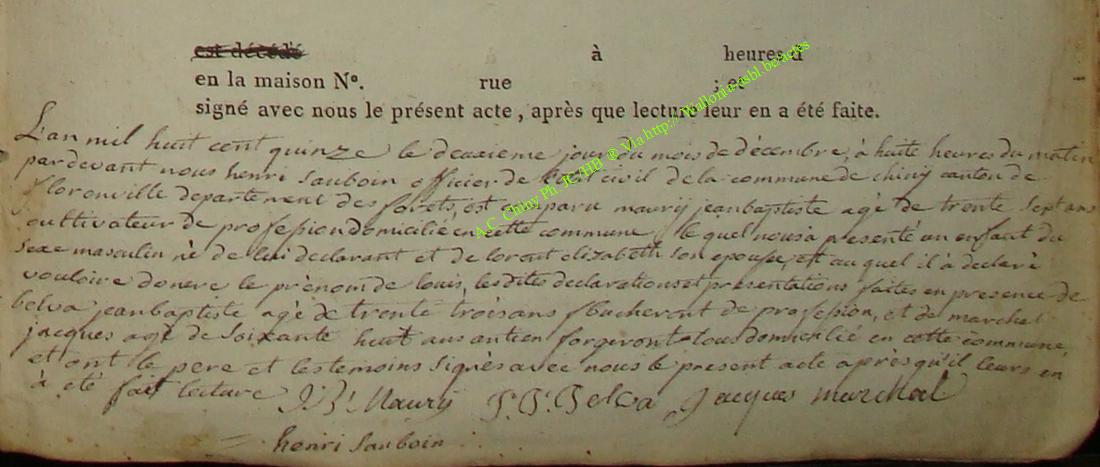 est décédé à heures d
en la maison N°. rue ; et
signé avec nous le présent acte, après que lecture leur en a été faite.
L'an mil huit cent quinze le deuxieme jour du mois de décembre, à huite heures du matin
pardevant nous henri Sauboin officier de l'état civil de la commune de chiny canton de
florenville departement des forets, est comparu maurij jeanbaptiste agé de trente sept ans
cultivateur de profession domicilié en cette commune lequel nous à presenté un enfant du
sexe masculin né de lui declarant et de lorant elizabeth son epouse, et auquel il à declaré
vouloire donere le prènom de louis, lesdites declarations et présentations faites en presence de
belva jeanbaptiste agé de trente trois ans Bucheront de profession, et de marchal
jacques agé de soixante huit ans antien forgeront tous domicilié en cette commune,
et ont le pere et les temoins signès avec nous le present acte après qu'il leurs en
à été fait lecture J.B. Maurij J.B. Belva Jacques marchal
henri Sauboin
A.C. Chiny Ph JC HB ® Via http://Wallonia-asbl.be/actes